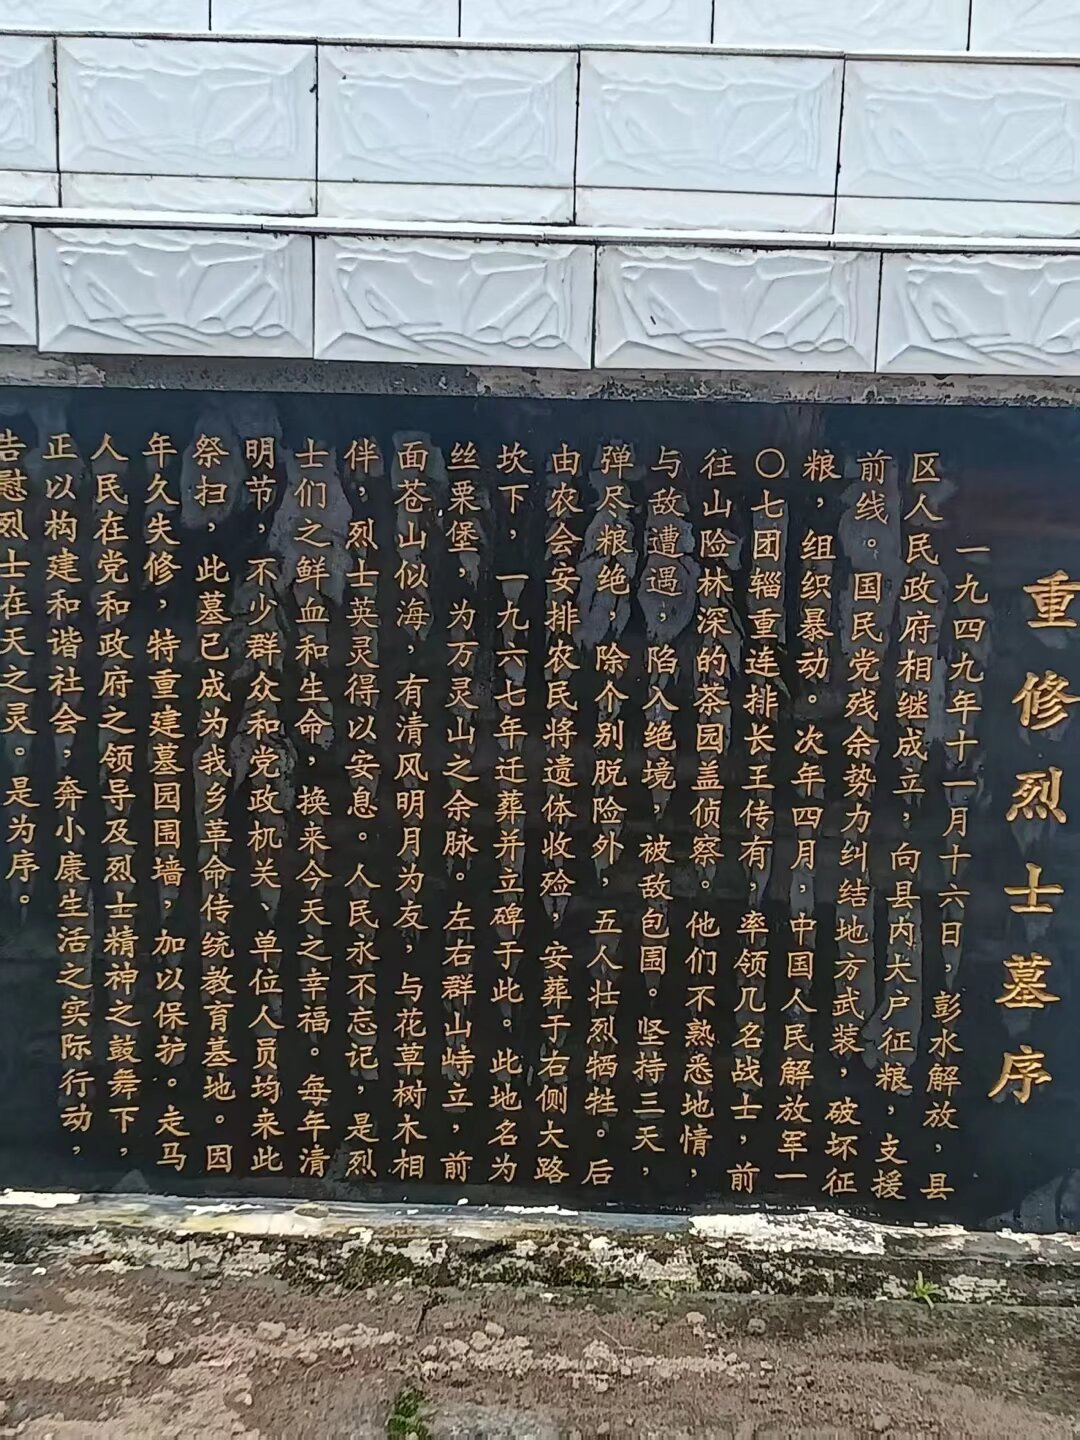 重修烈士墓序
一九四九年十一月十六日，彭水解放，县
区人民政府相继成立，向县内大户征粮，支援
前线。国民党残余势力纠结地方武装，破坏征
粮，组织暴动。次年四月，中国人民解放军一
〇七团辎重连排长王传有，率领几名战士，前
往山险林深的茶园盖侦察。他们不熟悉地情，
与敌遭遇，陷入绝境，被敌包围。坚持三天，
弹尽粮绝，除个别脱险外，五人壮烈牺牲。后
由农会安排农民将遗体收殓，安葬于右侧大路
坎下，一九六七年迁葬并立碑于此。此地名为
丝栗堡，为万灵山之余脉。左右群山峙立，前
面苍山似海，有清风明月为友，与花草树木相
伴，烈士英灵得以安息。人民永不忘记，是烈
士们之鲜血和生命，换来今天之幸福。每年清
明节，不少群众和党政机关、单位人员均来此
祭扫，此墓已成为我乡革命传统教育墓地。因
年久失修，特重建墓园围墙，加以保护。走马
人民在党和政府之领导及烈士精神之鼓舞下，
正以构建和谐社会，奔小康生活之实际行动，
告慰烈士在天之灵。是为序。